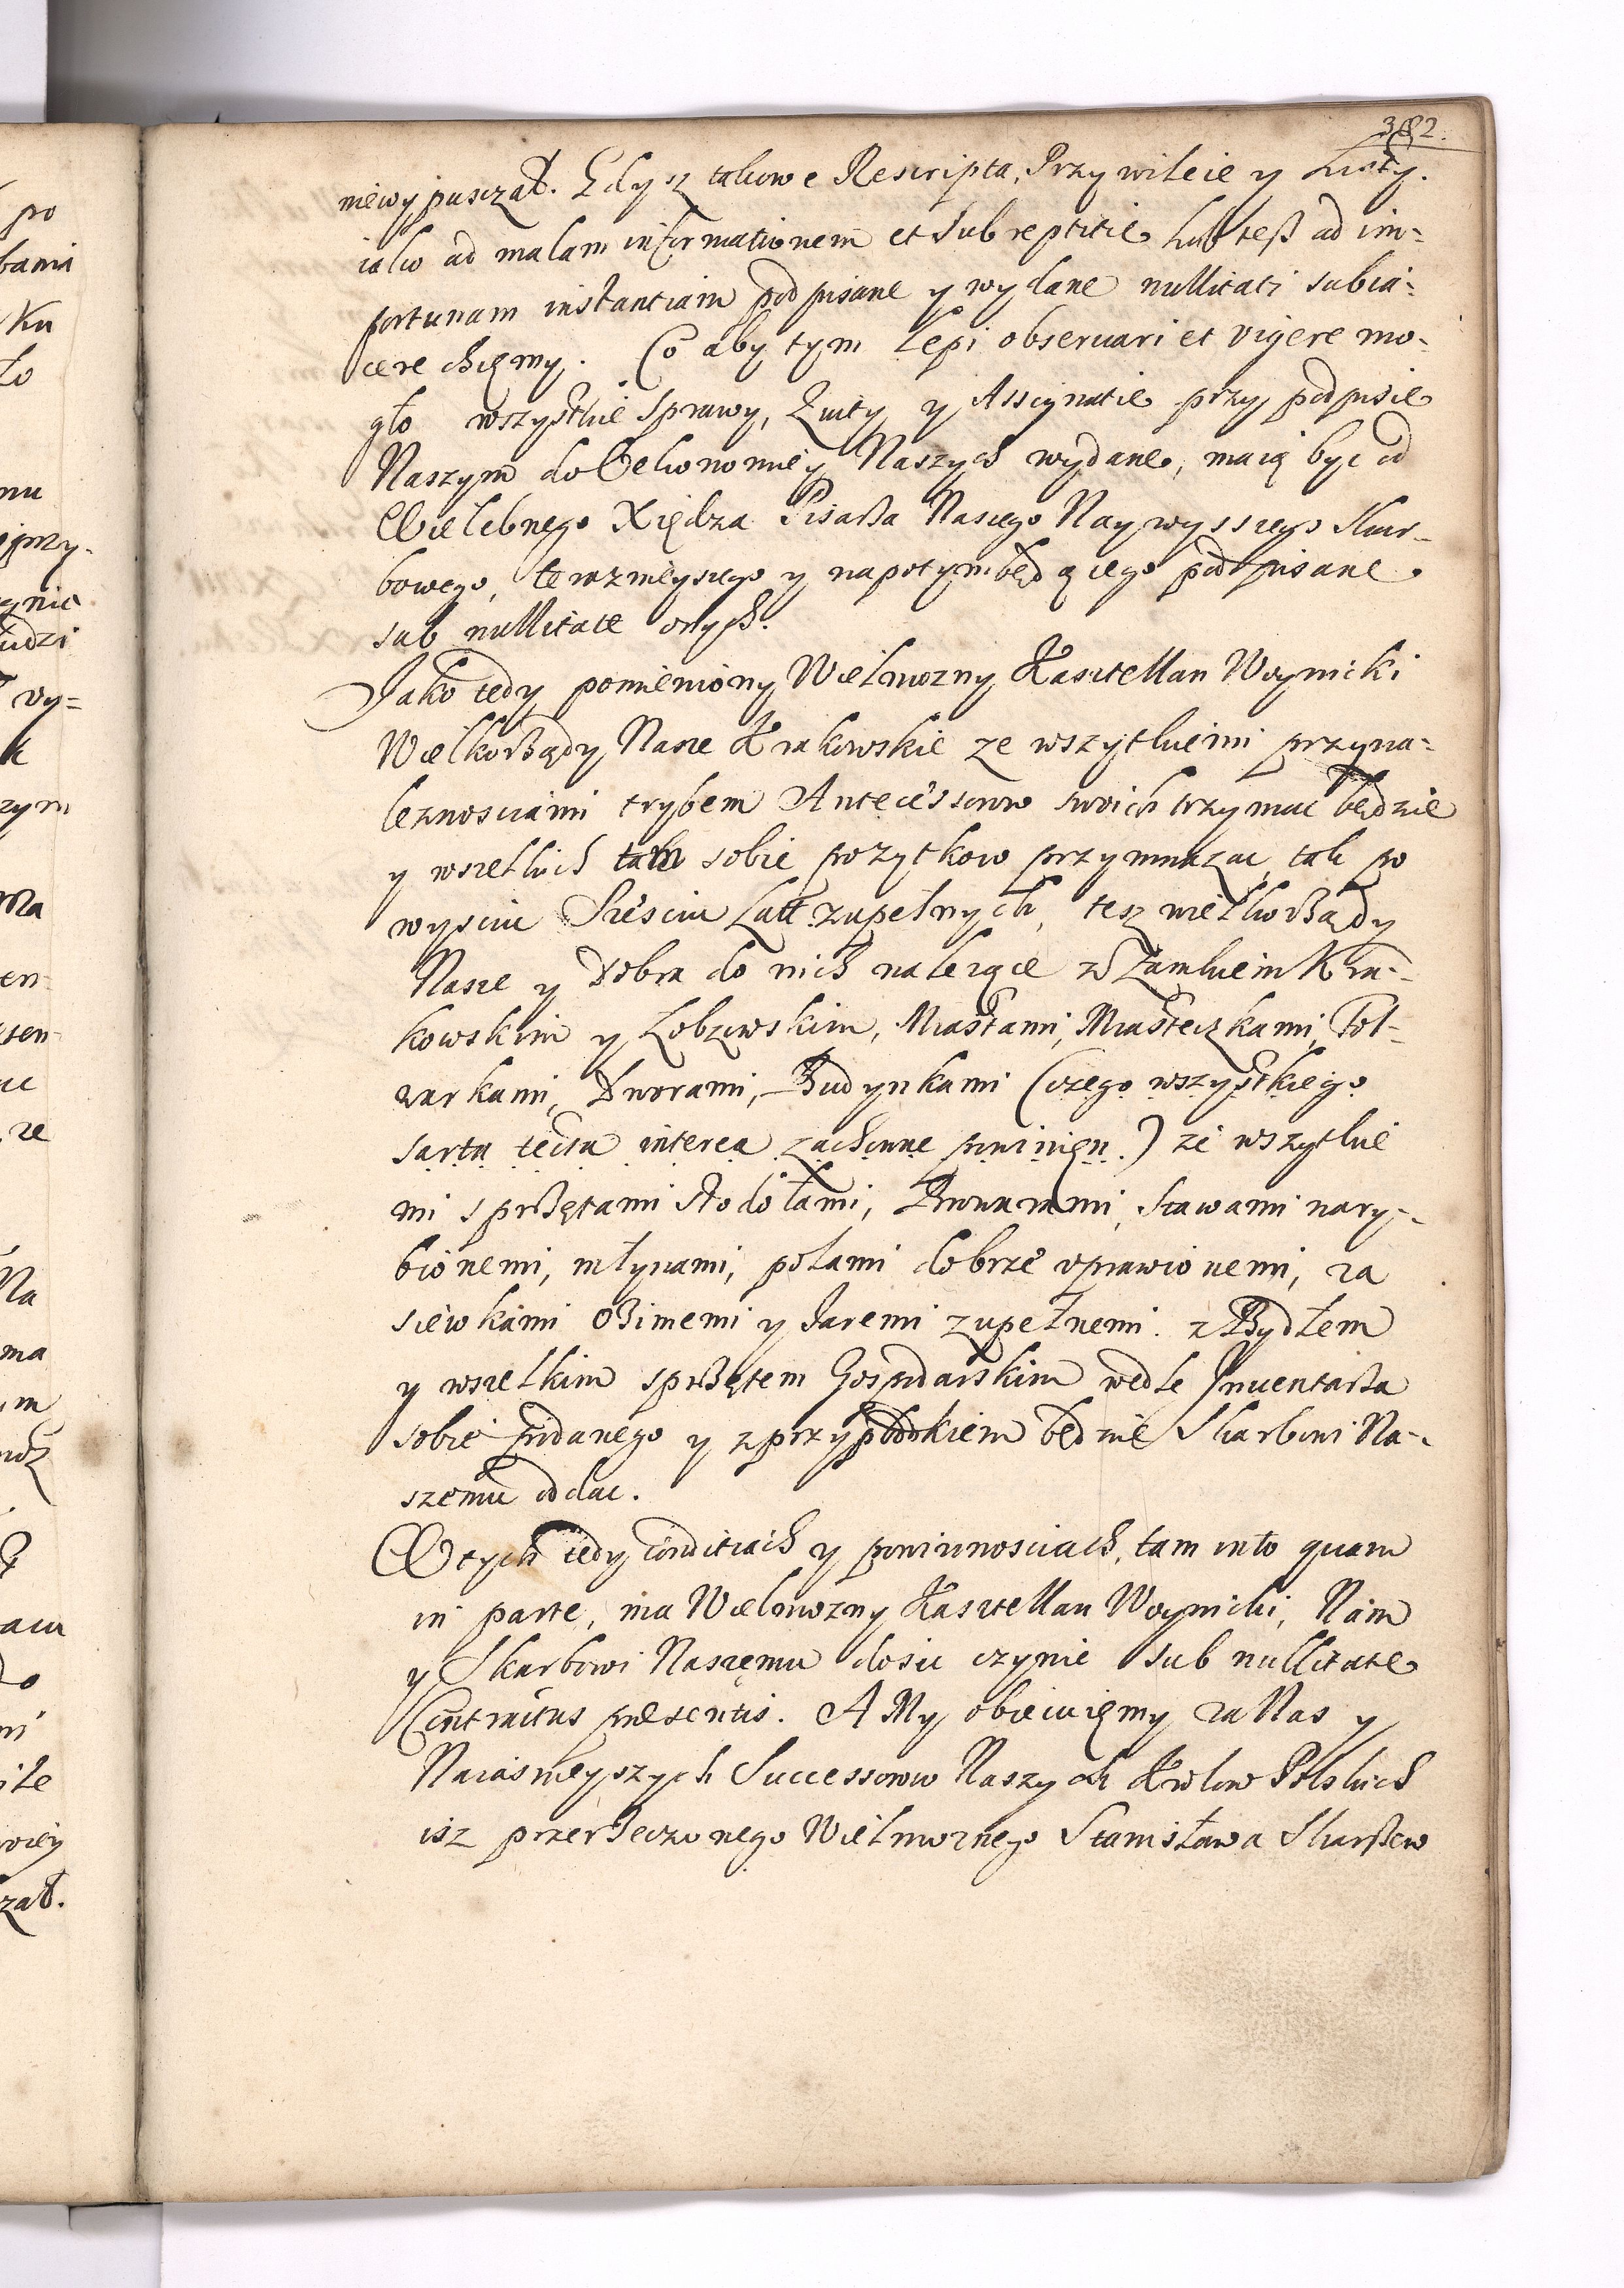 382.
niewypusczał. Gdysz takowe Rescripta, Przywileie y Listy.
iako ad malam informationem et subreptitie Lub teß ad im=
portunam instantiam podpisane y wydane nullitati subia=
cere chcęmy. Co aby tym Lepi obseruari et vigere mo=
gło wszystkie sprawy, Quity y Assignatie przy podpisie
Naszym do Oekonomiey Naszych wydane, maią byc od
Wielebnego Xiędza Pisarza Naszego Naywysszego Skar=
bowego, teraznieyszego y napotym będącego podpisane
sub nullitate onych.
Jako tedy pomieniony Wielmozny Kasztellan Woynicki
Wielkorządy Nasze Krakowskie ze wszytkiemi przyna=
leznosciami trybem Antecessorow swoich trzymac będzie
y wszelkich tam sobie pozytkow przymnazac, tak po
wysciu Szesciu Latt zupełnych, tesz wielkorządy
Nasze y dobra do nich nalezące z Zamkiem Kra=
kowskim y Lobzowskim, Miastami, Miasteczkami, Fol=
warkami, Dworami, Budynkami (czego wszystkiego
sarta tecta interea zachowac powinięn.) ze wszytkie
mi sprzętami Stodołami, Browarami, Stawami nary=
bionemi, młynami, polami dobrze vprawionemi, za
siewkami Ozimemi y Jaremi zupełnemi. z Bydłem
y wszelkim sprzętem Gospodarskim wedle Inuentarza
sobie podanego y z przypłodkiem będzie Skarbowi Na=
szemu oddac.
W tych tedy conditiach y powinnosciach, tam in to quam
in parte, ma Wielmozny Kasztellan Woynicki, Nam
y Skarbowi Naszęmu dosic czynic sub nullitate
Contractus præsentis. A My obiecuięmy za Nas y
Naiasnieyszych Successorow Naszych Krolow Polskich
isz przerzeczonego Wielmoznego Stanisława Skarszew